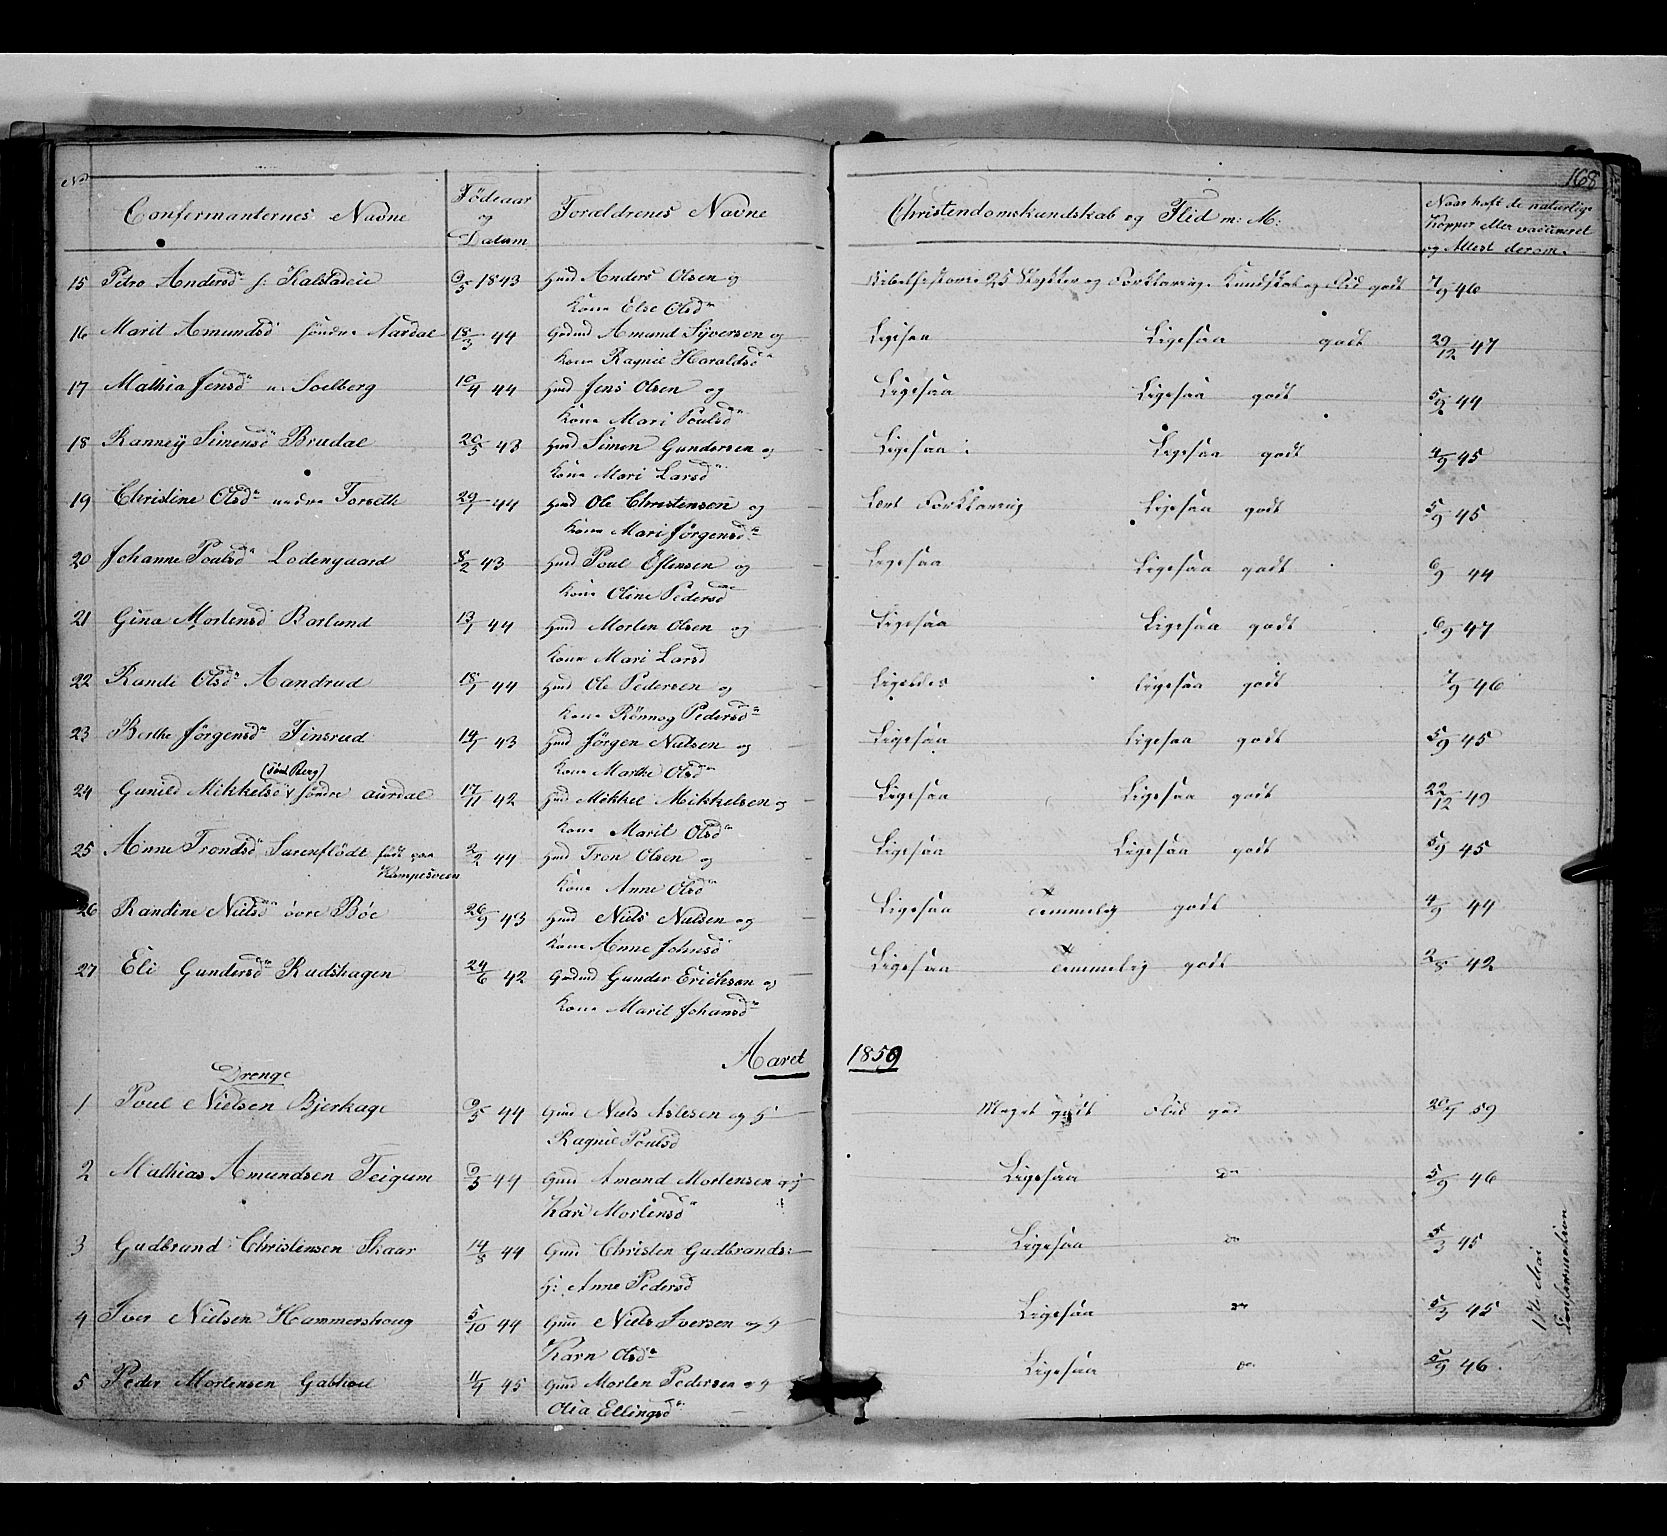 168
No Confermanternes Navne Födeaar og Datum Forældrenes Navne Christendomskundskab og Flid m: M: Naar haft de naturlige Kopper eller vaccineret og Attest derom.
15 Petro Andersd 9/5 1843 Hmd Anders Olsen og Bibelhistorie 25 Stykker og Forklaring. Kundskab og Flid godt 7/9 46
Kone Else Olsd
16 Marit Amundsd söndre Aurdal 18/3 44 Gmd Amund Syversen og Ligesaa Ligesaa godt 29/12 47
Kone Ragnil Haraldsd
17 Mathia Jensd n: Soelberg 10/4 44 Hmd Jens Olsen og Ligesaa Ligesaa godt 5/9 44
Kone Mari Poulsd
18 Ranney Simensd Brudal 20/5 43 Hmd Simen Gundersen og Ligesaa Ligesaa godt 4/9 45
Kone Mari Larsd
19 Christine Olsd nedre Forseth 29/1 44 Hmd Ole Christensen og Lært Forklaring Ligesaa godt 5/9 45
Kone Mari Jörgensd
20 Johanne Poulsd Lodengaard 8/2 43 Hmd Poul Estensen og Ligesaa Ligesaa godt 6/9 44
Kone Oline Pedersd
21 Gina Mortensd Borlund 13/1 44 Hmd Morten Olsen og Ligesaa Ligesaa godt 6/9 47
Kone Mari Larsd
22 Randi Olsd Aandrud 18/1 44 Hmd Ole Pedersen og Ligeledes Ligesaa godt 7/9 46
Kone Rönnog Pedersd
23 Berthe Jörgensd Finsrud 14/1 43 Hmd Jörgen Nielsen og Ligesaa Ligesaa godt 5/9 45
Kone Marthe Olsd
24 Gunild Mikkelsd söndre Aurdal 17/11 42 Hmd Mikkel Mikkelsen og Ligesaa Ligesaa godt 22/12 49
Kone Marit Olsd
25 Anne Trondsd Surenflödt født paa Kampesveen 2/2 44 Hmd Tron Olsen og Ligesaa Ligesaa godt 5/9 45
Kone Anne Olsd
26 Randine Nielsd övre Böe 26/9 43 Hmd Niels Nielsen og Ligesaa Temmelig godt 4/9 44
Kone Anne Johnsd
27 Eli Gundersd Rudshagen 24/6 42 Gmd Gunder Ericksen og Ligesaa Temmelig godt 2/8 42
Kone Marit Johansd
Aaret 1859
Drenge
1 Poul Nielsen Bjerkage 9/5 44 Gmd Niels Aslesen og H Meget godt Flid god 20/4 59
Ragnil Poulsd
2 Mathias Amundsen Teigum 9/3 44 Gmd Amund Mortensen og H Ligesaa do 5/9 46
Kari Mortensd
3 Gudbrand Christensen Skaar 14/8 44 Gmd Christen Gudbrands: Ligesaa do 5/3 45
H: Anne Pedersd
4 Iver Nielsen Hammershoug 5/10 44 Gmd Niels Iversen og H Ligesaa do 5/3 45
Karn Olsd
5 Peder Mortensen 11/4 45 Gmd Morten Pedersen og H Ligesaa do 5/9 46.
Olia Ellingsd
Mai
Confermation